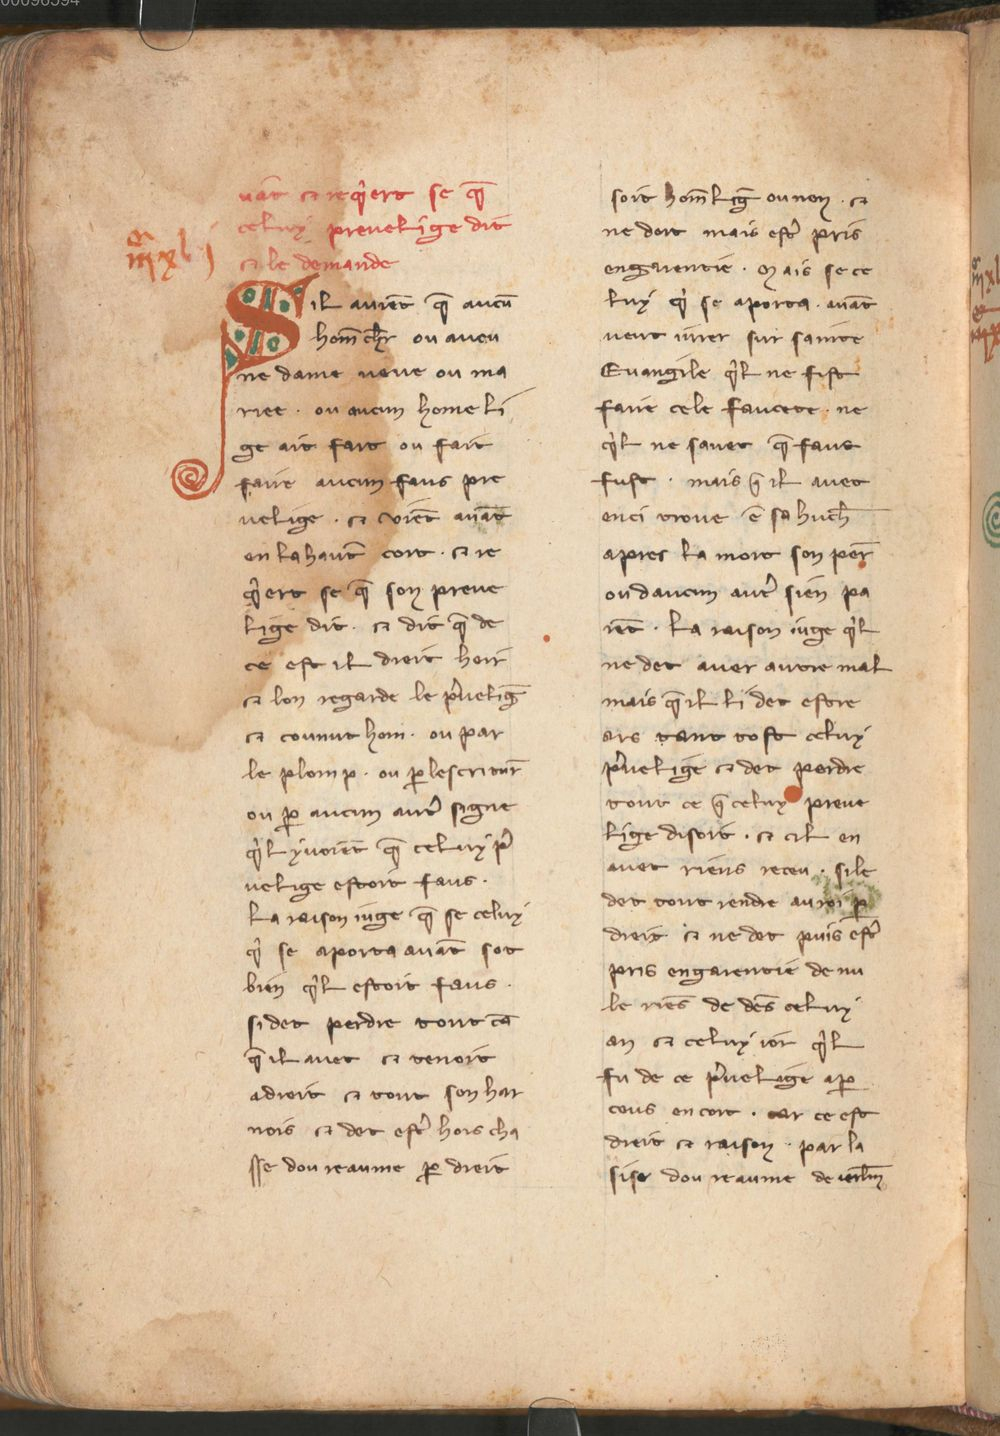 00096594
vāt ⁊ reqͥert se q̄
celuy preuelige dit
⁊ le demande
Sil auiēt q̄ aucū
hom̄ chl̄r ou aucu
ne dame ueue ou ma
riee · ou aucun home li
ge ait fait ou fait
faire aucun faus pre
uelige · ⁊ viēt auāt
en la haut̄ cort · ⁊ re
qͥert se q̄ son preue
lige dit · ⁊ dit q̄ de
ce est il dreit heir
⁊ lon regarde le pͥueliḡ
⁊ counut hom · ou par
le plomp · ou ꝑ lescritur̄
ou ꝑ aucun autͤ signe
qͥl yuoient q̄ celuy pͥ
uelige estoit faus ·
La raison iuge q̄ se celuy
qͥ se aporta auāt sot
bien qͥl estoit faus ·
si det perdre tout cā
q̄ il auet ⁊ tenoit
adreit ⁊ tout son har
nois ⁊ det estͤ hors cha
sse dou reaume ꝑ dreit
soit hom̄ liḡ ou non · ⁊
ne doit mais estͤ pris
engarentie · Mais se ce
luy qͥ se aporta · auāt
veut iurer sur sainte
Euangile qͥl ne fist
faire cele faucete · ne
qͥl ne sauet q̄ faus
fust · mais q̄ il auet
enci troue ē sa huch̄
apres la mort son per̄
ou daucun autͤ sien pa
rēt · La raison iuge qͥl
ne det auer autre mal
mais q̄ il li det estre
ars tant tost celuy
pͥuelige ⁊ det perdre
tout ce q̄ celuy preue
lige disoit · ⁊ cil en
auet riens receu · si le
det tout rendre au roi ꝑ
dreit ⁊ ne det puis estͤ
pris engarentie de nu
le riēs de dēs celuy
an ⁊ celuy ior qͥl
fu de ce pͥuelige aꝑ
ceus en cort · car ce est
dreit ⁊ raison · par la
sise dou reaume de ierl̄m